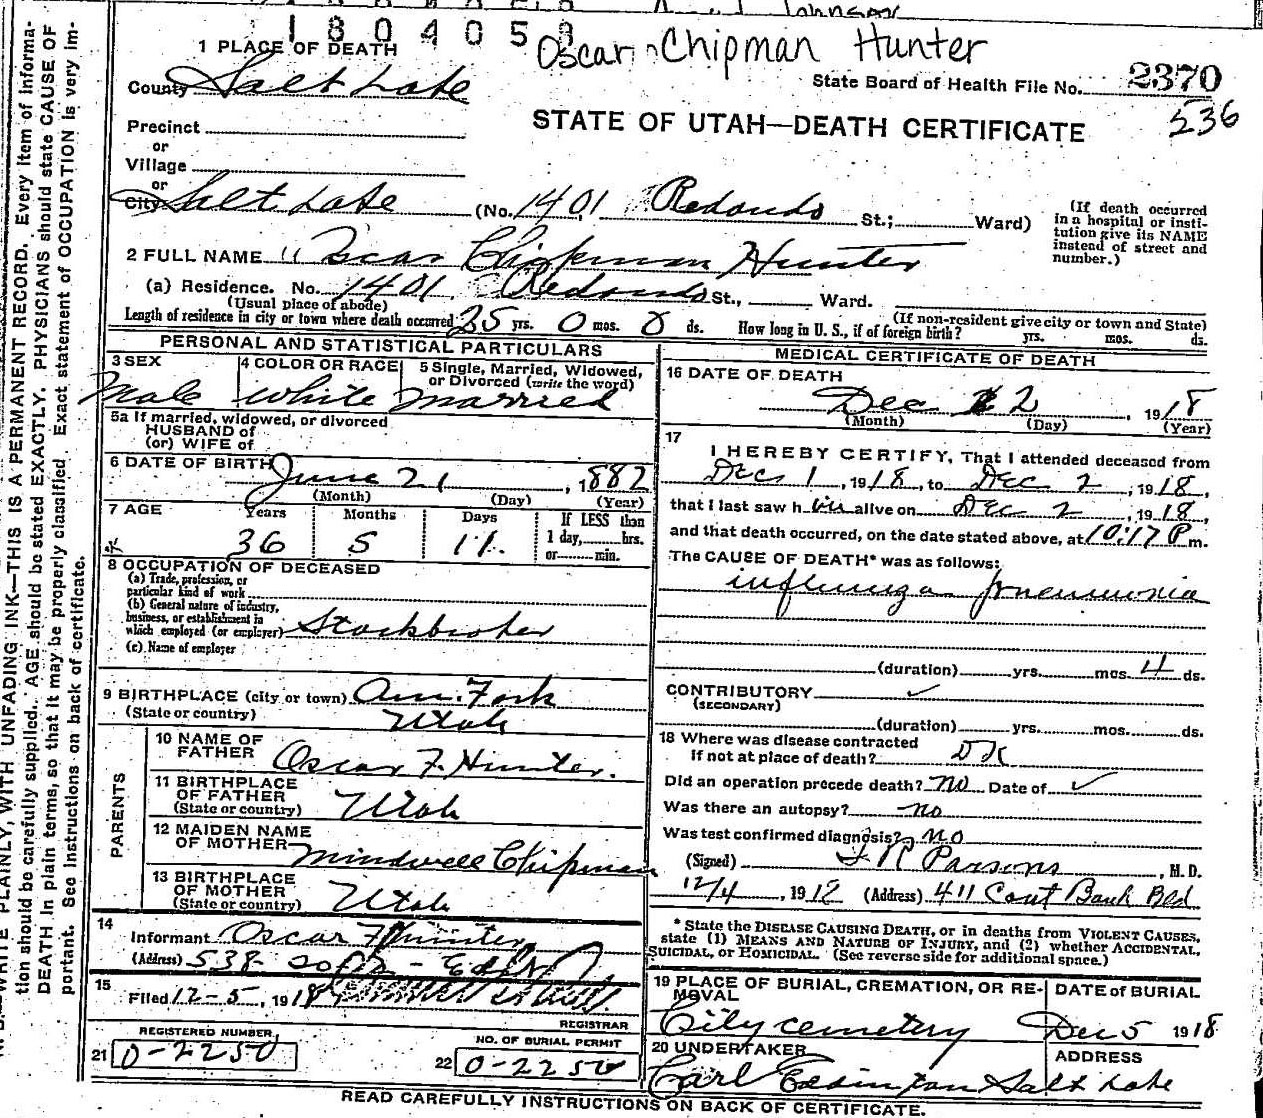 180405
Oscar Chipman Hunter
1 PLACE OF DEATH
County Salt Lake
State Board of Health File No. 2370
536
STATE OF UTAH—DEATH CERTIFICATE
Precinct
or
Village
or
City Salt Lake (No. 1401 Redondo St.; Ward)
(If death occurred in a hospital or insti-
tution give its NAME
instead of street and
number.)
2 FULL NAME Oscar Chipman Hunter
(a) Residence. No. 1401 Redondo St., Ward.
(Usual place of abode) (If non-resident give city or town and State)
Length of residence in city or town where death occurred 35 yrs. 0 mos. 0 ds. How long in U. S., if of foreign birth? yrs. mos. ds.
PERSONAL AND STATISTICAL PARTICULARS
3 SEX Male
4 COLOR OR RACE White
5 Single, Married, Widowed,
or Divorced (write the word)
Married
5a If married, widowed, or divorced
HUSBAND of
(or) WIFE of
6 DATE OF BIRTH June 21, 1882
(Month) (Day) (Year)
7 AGE Years Months Days If LESS than
1 day, hrs.
or min.
36 5 11
8 OCCUPATION OF DECEASED
(a) Trade, profession, or
particular kind of work
(b) General nature of industry,
business, or establishment in
which employed (or employer) Stockbroker
(c) Name of employer
9 BIRTHPLACE (city or town) Am. Fork
(State or country) Utah
PARENTS
10 NAME OF
FATHER Oscar F. Hunter.
11 BIRTHPLACE
OF FATHER
(State or country) Utah
12 MAIDEN NAME
OF MOTHER Mindwell Chipman
13 BIRTHPLACE
OF MOTHER
(State or country) Utah
14
Informant Oscar F Hunter
(Address) 538
15
Filed 12-5, 1918
REGISTRAR
REGISTERED NUMBER
21 0-2250
NO. OF BURIAL PERMIT
22 0-2250
MEDICAL CERTIFICATE OF DEATH
16 DATE OF DEATH
Dec 2, 1918
(Month) (Day) (Year)
17
I HEREBY CERTIFY, That I attended deceased from
Dec 1, 1918, to Dec 2, 1918,
that I last saw h im alive on Dec 2, 1918,
and that death occurred, on the date stated above, at 10:17 P m.
The CAUSE OF DEATH* was as follows:
influenza pneumonia
(duration) yrs. mos. 4 ds.
CONTRIBUTORY ✓
(SECONDARY)
(duration) yrs. mos. ds.
18 Where was disease contracted
if not at place of death? DK
Did an operation precede death? no Date of ✓
Was there an autopsy? no
Was test confirmed diagnosis? no
(Signed) Parsons, M.D.
12/4, 1918 (Address) 411 Cont Bank Bld
* State the DISEASE CAUSING DEATH, or in deaths from VIOLENT CAUSES,
state (1) MEANS AND NATURE OF INJURY, and (2) whether ACCIDENTAL,
SUICIDAL, or HOMICIDAL. (See reverse side for additional space.)
19 PLACE OF BURIAL, CREMATION, OR RE-
MOVAL
City cemetery
DATE of BURIAL
Dec 5 1918
20 UNDERTAKER
ADDRESS
Salt Lake
READ CAREFULLY INSTRUCTIONS ON BACK OF CERTIFICATE.
WRITE PLAINLY, WITH UNFADING INK—THIS IS A PERMANENT RECORD. Every item of informa-
tion should be carefully supplied. AGE should be stated EXACTLY. PHYSICIANS should state CAUSE OF
DEATH in plain terms, so that it may be properly classified. Exact statement of OCCUPATION is very im-
portant. See instructions on back of certificate.